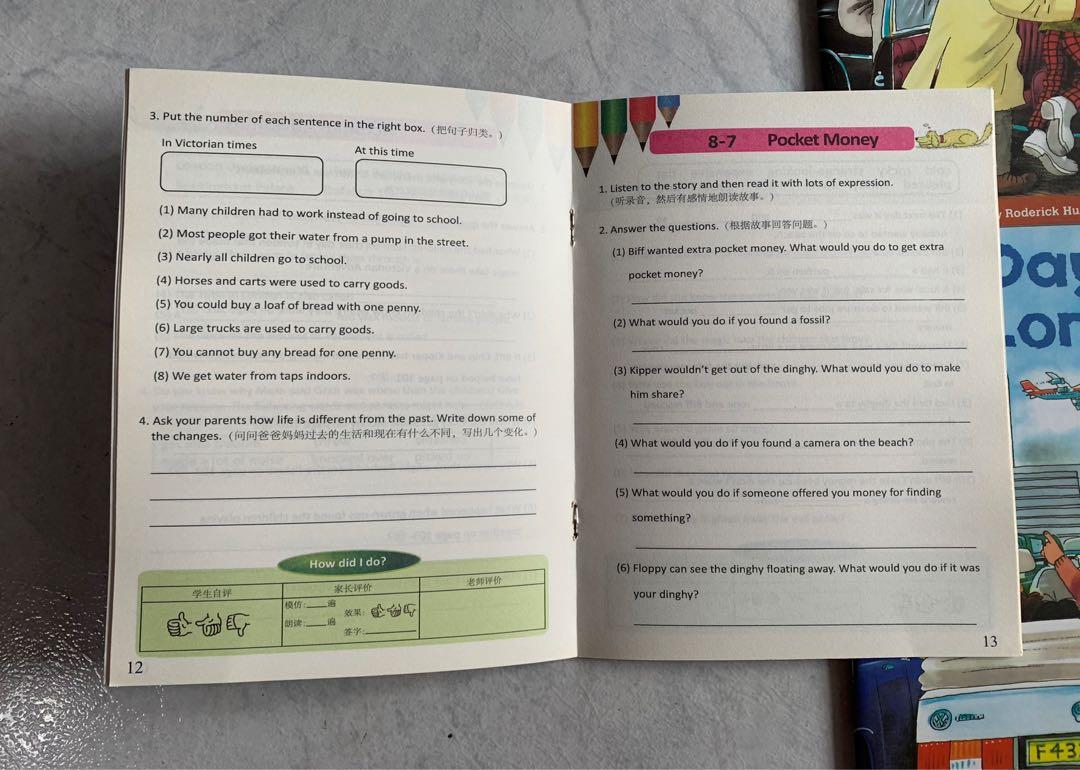 3. Put the number of each sentence in the right box.（把句子归类。）
In Victorian times
At this time
(1) Many children had to work instead of going to school.
(2) Most people got their water from a pump in the street.
(3) Nearly all children go to school.
(4) Horses and carts were used to carry goods.
(5) You could buy a loaf of bread with one penny.
(6) Large trucks are used to carry goods.
(7) You cannot buy any bread for one penny.
(8) We get water from taps indoors.
4. Ask your parents how life is different from the past. Write down some of
the changes.（问问爸爸妈妈过去的生活和现在有什么不同，写出几个变化。）
How did I do?
学生自评
家长评价
老师评价
模仿:____遍
效果:
朗读:____遍
签字:________
12
8-7 Pocket Money
1. Listen to the story and then read it with lots of expression.
（听录音，然后有感情地朗读故事。）
2. Answer the questions.（根据故事回答问题。）
(1) Biff wanted extra pocket money. What would you do to get extra
pocket money?
(2) What would you do if you found a fossil?
(3) Kipper wouldn't get out of the dinghy. What would you do to make
him share?
(4) What would you do if you found a camera on the beach?
(5) What would you do if someone offered you money for finding
something?
(6) Floppy can see the dinghy floating away. What would you do if it was
your dinghy?
13
Roderick Hu
Day
Lon
F43